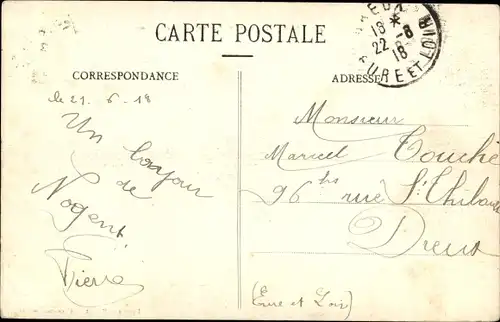 CARTE POSTALE
CORRESPONDANCE
ADRESSE
DREUX
18 * 
22 -8
18
EURE ET LOIR
le 21. 6. 18
Un bonjour
de
Nogent.
Pierre
Monsieur
Marcel Touché
96 bis rue St Thibault
Dreux
(Eure et Loir)